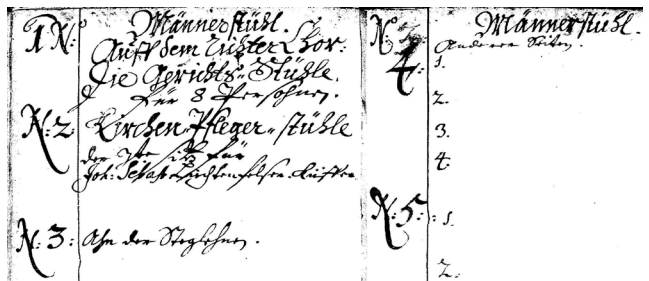 1 N:º Männerstühl.
Auff dem Lichter Chor:
Die Gerichts-Stühle.
für 8 Persohnen.
N: 2. Kirchen-Pfleger-stühle
der für
Joh:
N: 3: Ahn der
Nº 4. Männerstühl.
Anderer Seiten.
1.
2.
3.
4.
N: 5: 1.
2.